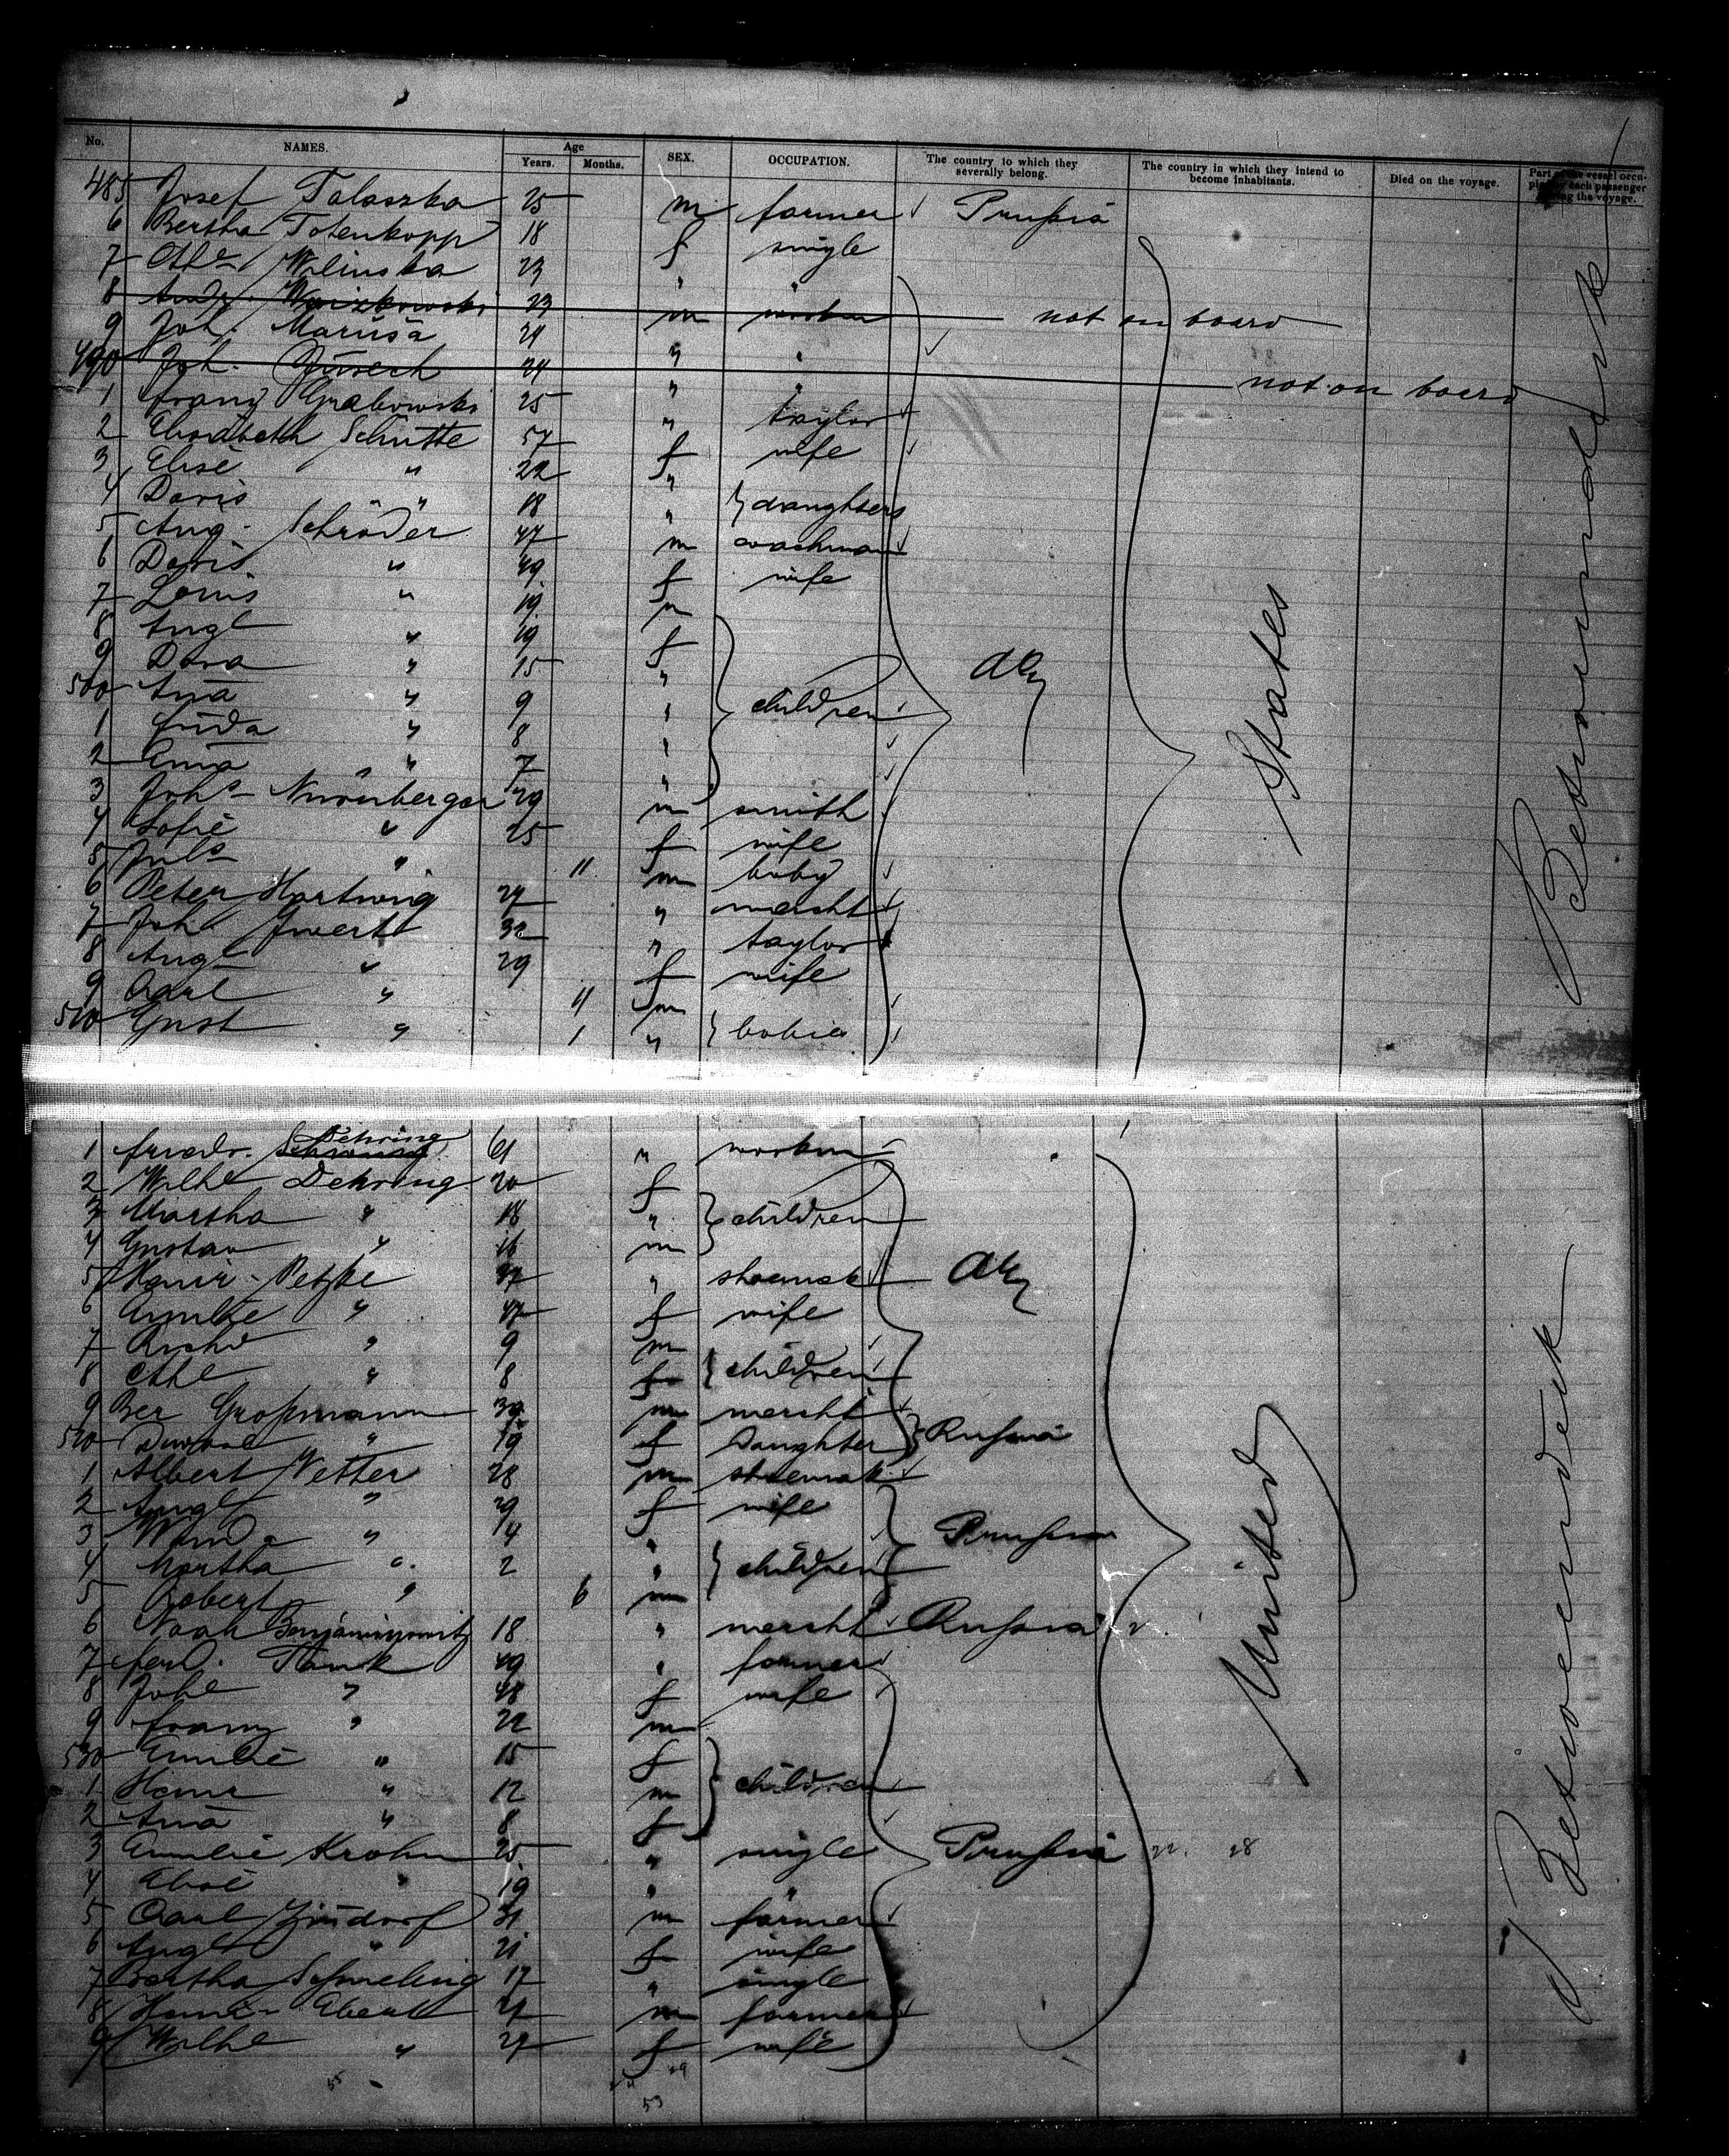 No. NAMES. Age Years. Months. SEX. OCCUPATION. The country to which they severally belong. The country in which they intend to become inhabitants. Died on the voyage. Part of the vessel occupied by each passenger during the voyage.
485 Josef Talaszka 25 m farmer Prußia
6 Bertha Totenkopp 18 f single
7 Wilinska 23 " "
8 23 m worker not on board
9 Joh. Marusa 24 " "
490 Joh. 24 " " not on board
1 Franz Grabowski 25 " taylor
2 Elisabeth Schutte 57 f wife
3 Elise " 22 "
4 Doris " 18 " daughters
5 Aug. Schröder 47 m coachman
6 Doris " 49 f wife
7 Louis " 19 m
8 Augt " 19 f
9 Dora " 15 "
500 Ana " 9 " children
1 Frida " 8 "
2 Ema " 7 "
3 Johs Nürenberger 29 m smith
4 Sofie " 25 f wife
5 Juls " 11 m baby
6 Peter Hartwig 27 " mercht
7 Joh Ewert 32 " taylor
8 Augt " 29 f wife
9 Carl " 11 m
510 Gust " 1 " babies
Gy
States
Betweendeck
1 Friedr. Dehring 61 " worker
2 Wilhe Dehring 20 f
3 Martha " 18 " children
4 Gustav " 16 m
5 Heinr. Petzke 37 " shoemak
6 Emilie " 47 f wife
7 Richd " 9 m
8 " 8 f children
9 Ber Großmann 39 m mercht
520 " 19 f Daughter Rußia
1 Albert Vetter 28 m shoemak
2 Augt " 29 f wife
3 Wanda " 4 " Prußia
4 Martha " 2 " children
5 Robert " 6 m
6 Noah Benjaminowitz 18 " mercht Rußia
7 Ferd. Thank 49 " farmer
8 Johe " 48 f wife
9 Franz " 22 m
530 Emilie " 15 f
1 Heinr " 12 m children
2 Ana " 8 f
3 Emilie Krohn 25 " single Prußia
4 Elise " 19 " "
5 Carl Zindorf 31 m farmer
6 Augt " 21 f wife
7 Bertha Schmeling 17 " single
8 Heinr. Ebert 27 m farmer
9 Wilhe " 27 f wife
53
Gy
United
Betweendeck